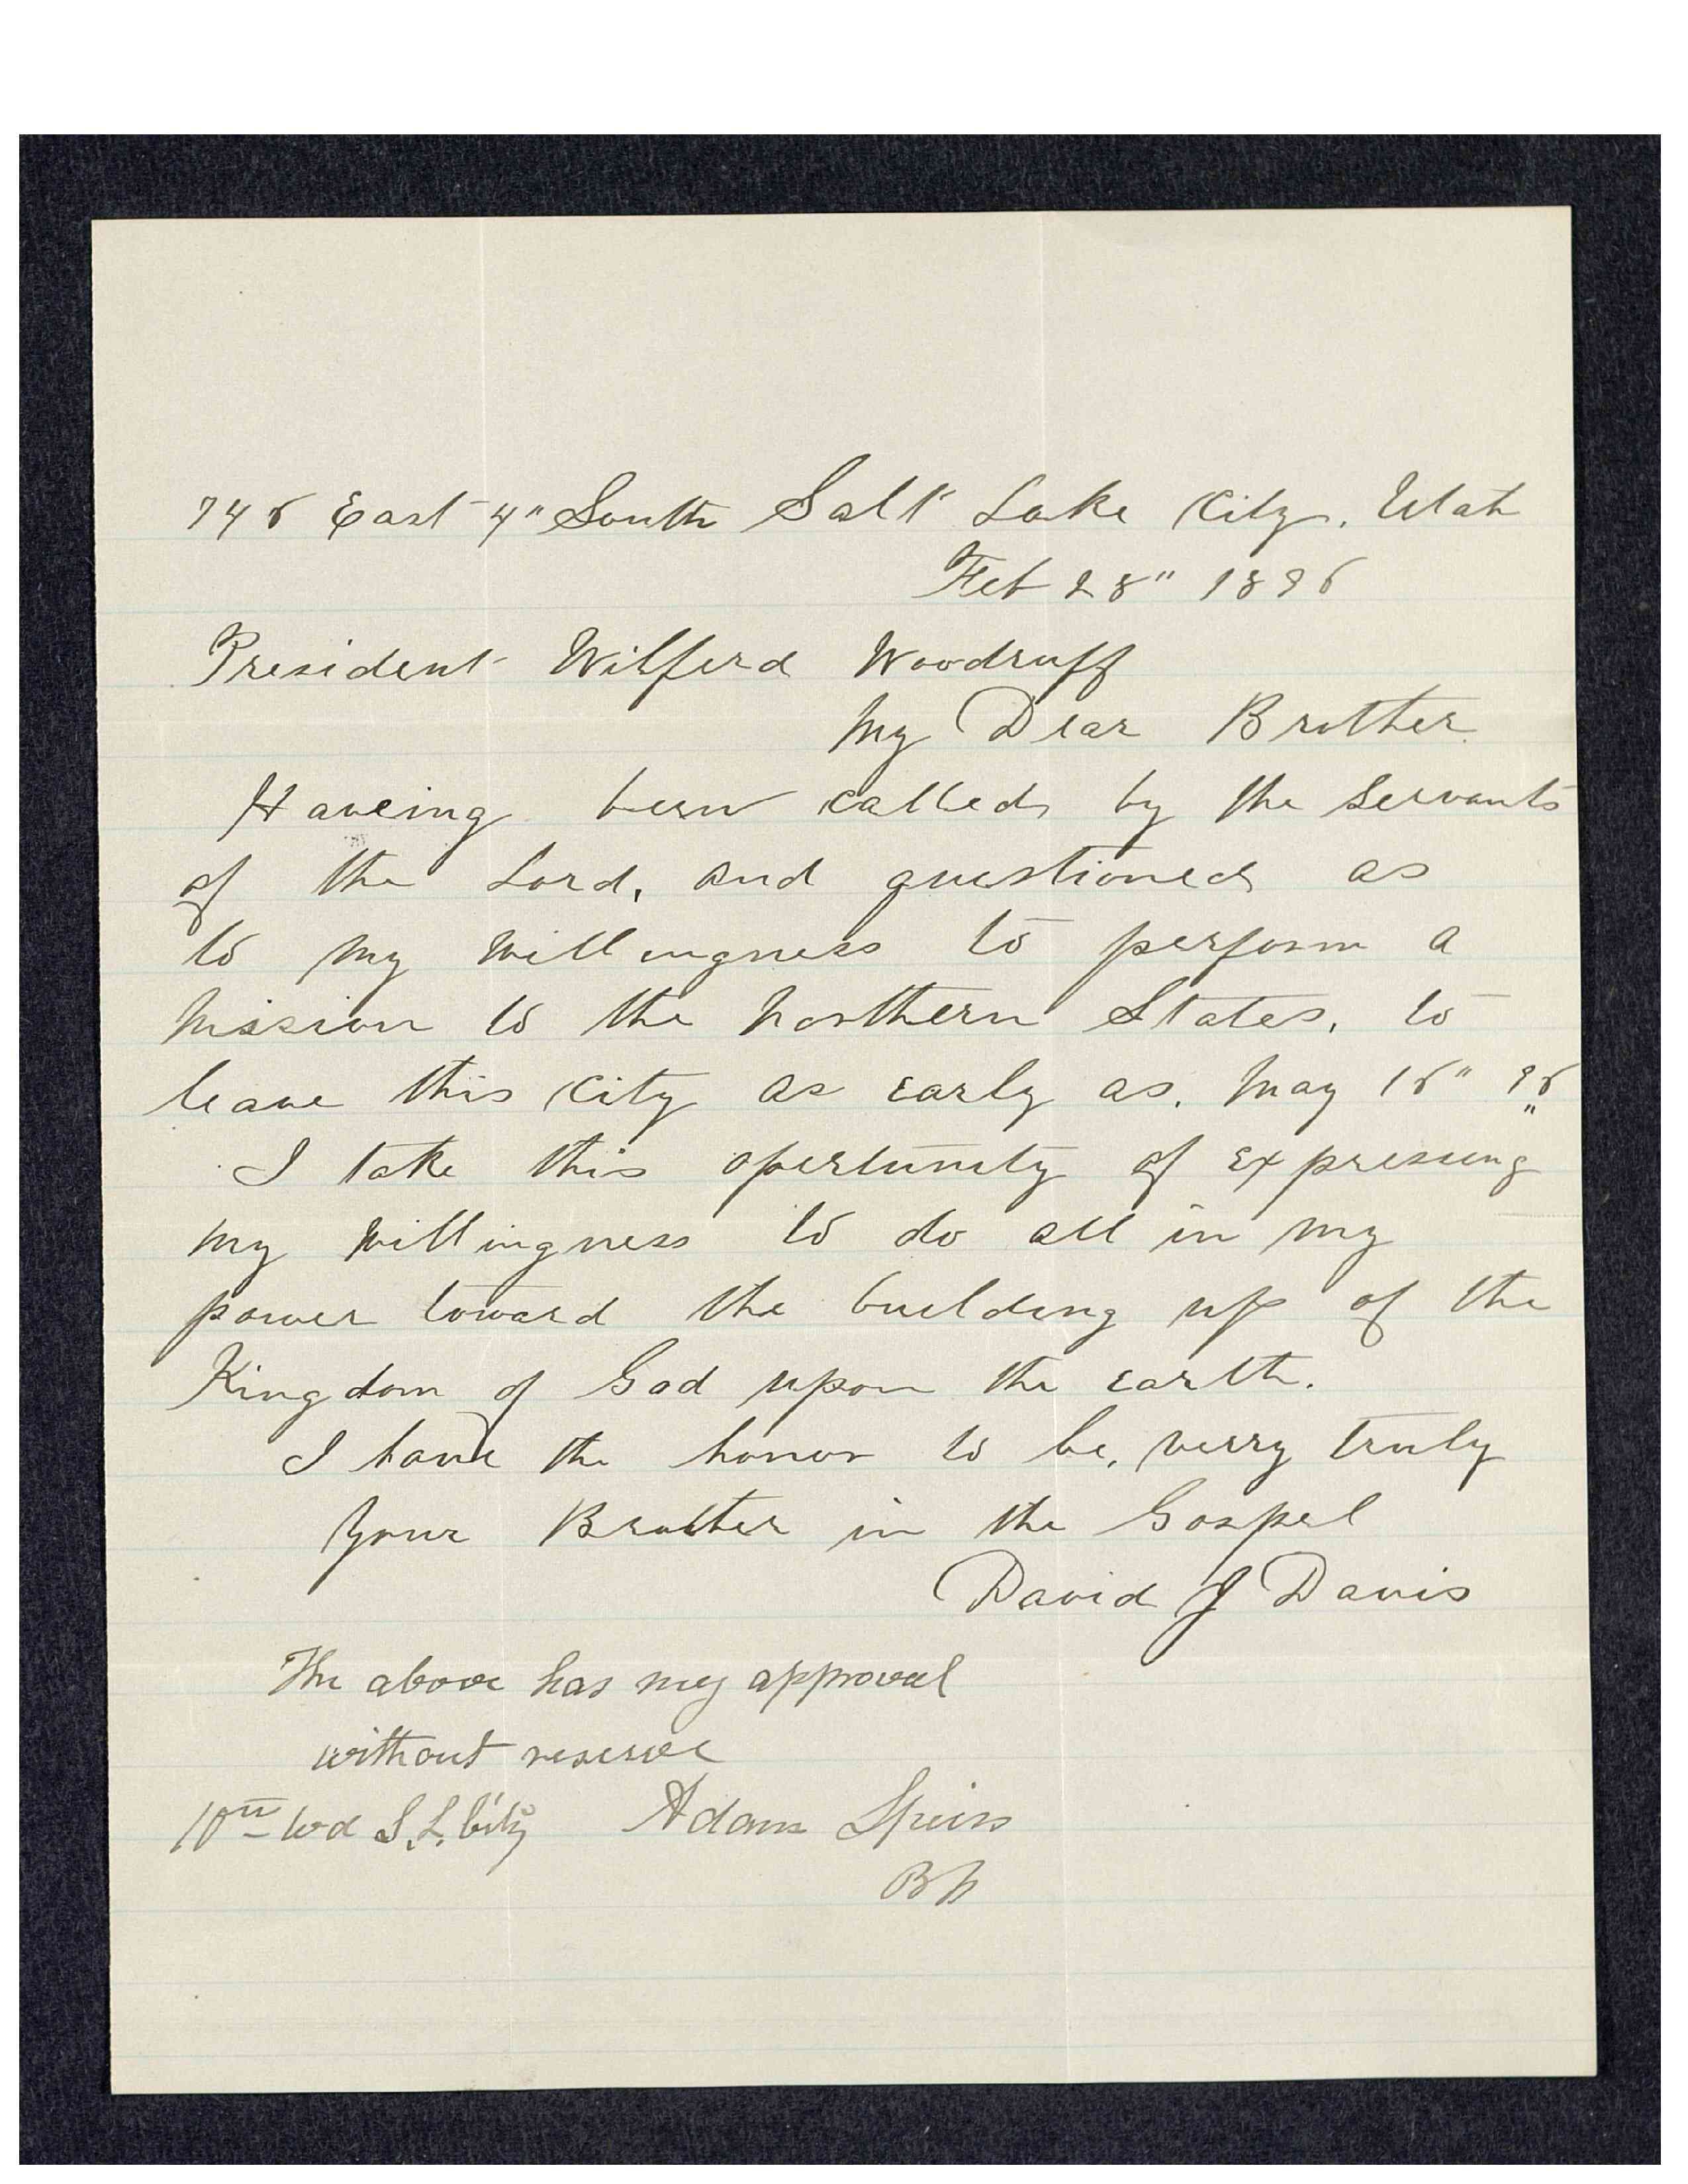 746 East 4" South Salt Lake City, Utah
Feb 28" 1896
President Wilferd Woodruff
My Dear Brother.
Haveing been called by the Servants
of the Lord, and questioned as
to my willingness to perform a
Mission to the Northern States, to
leave this City as early as. May 16" 96
I take this opertunity of expressing
my willingness to do all in my
power toward the building up of the
Kingdom of God upon the earth.
I have the honor to be, verry truly
Your Brother in the Gospel
David J Davis
The above has my approval
without reserve
10th Wd S. L. City Adam Speirs
Bp